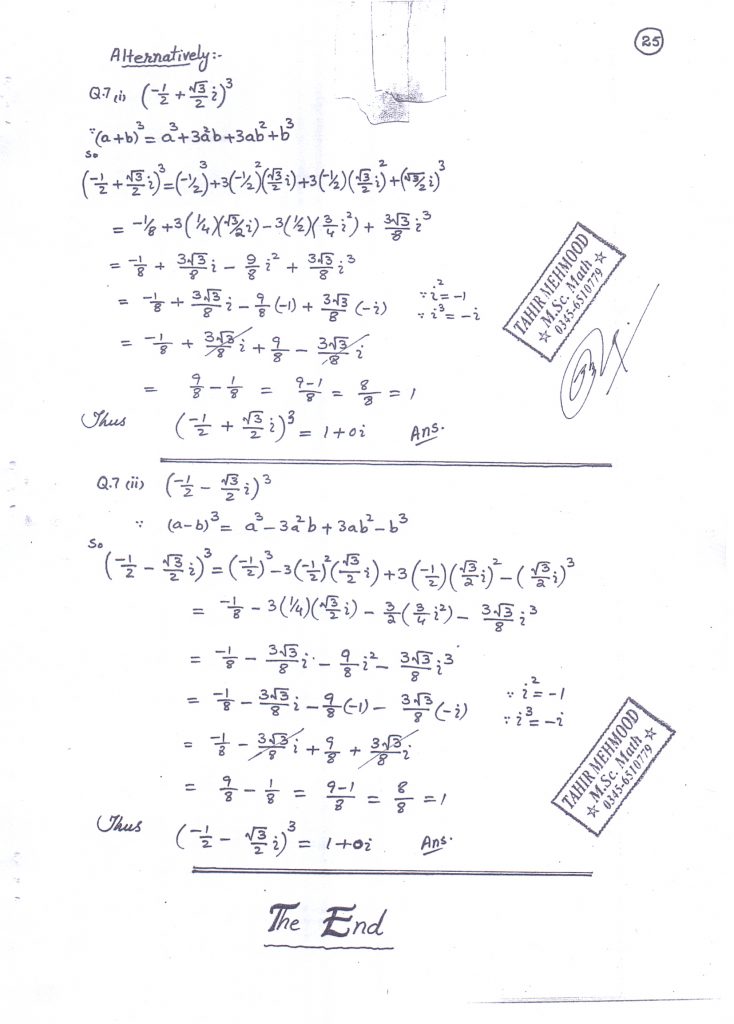 25
Alternatively:-
Q.7 (i) (-1/2 + √3/2 i)³
∵ (a+b)³ = a³+3a²b+3ab²+b³
So
(-1/2 + √3/2 i)³ = (-1/2)³+3(-1/2)²(√3/2 i)+3(-1/2)(√3/2 i)²+(√3/2 i)³
= -1/8 +3(1/4)(√3/2 i) -3(1/2)(3/4 i²) + 3√3/8 i³
= -1/8 + 3√3/8 i - 9/8 i² + 3√3/8 i³
= -1/8 + 3√3/8 i - 9/8 (-1) + 3√3/8 (-i) ∵ i² = -1
∵ i³ = -i
= -1/8 + 3√3/8 i + 9/8 - 3√3/8 i
= 9/8 - 1/8 = 9-1/8 = 8/8 = 1
Thus (-1/2 + √3/2 i)³ = 1+0i Ans.
TAHIR MEHMOOD
☆ M.Sc. Math ☆
0345-6510779
Q.7 (ii) (-1/2 - √3/2 i)³
∵ (a-b)³ = a³-3a²b+3ab²-b³
So
(-1/2 - √3/2 i)³ = (-1/2)³-3(-1/2)²(√3/2 i)+3(-1/2)(√3/2 i)²-(√3/2 i)³
= -1/8 - 3(1/4)(√3/2 i) - 3/2(3/4 i²) - 3√3/8 i³
= -1/8 - 3√3/8 i - 9/8 i² - 3√3/8 i³
= -1/8 - 3√3/8 i - 9/8 (-1) - 3√3/8 (-i) ∵ i² = -1
∵ i³ = -i
= -1/8 - 3√3/8 i + 9/8 + 3√3/8 i
= 9/8 - 1/8 = 9-1/8 = 8/8 = 1
Thus (-1/2 - √3/2 i)³ = 1+0i Ans.
TAHIR MEHMOOD
☆ M.Sc. Math ☆
0345-6510779
The End